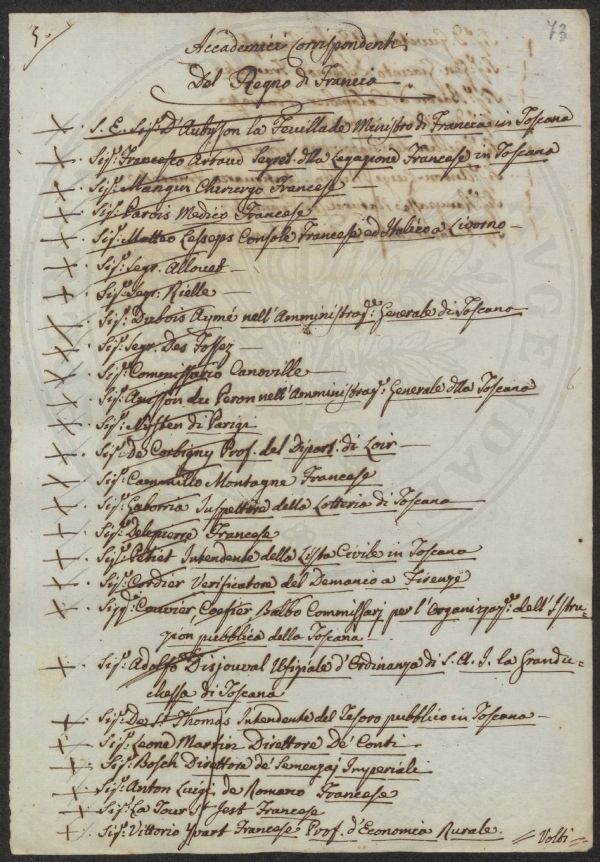 5. 73
Accademici Corrispondenti
Del Regno di Francia
S. E. Sigr. D'Aubusson la Feuillade Ministro di Francia in Toscana
Sigr. Francesco Artaud Segret. della Legazione Francese in Toscana
Sigr. Mangin Chirurgo Francese
Sigr. Parois Medico Francese
Sigr. Matteo Lesseps Console Francese ed Italico a Livorno
Sigr. Segr. Allouet
Sigr. Segr. Rielle
Sigr. Dubois Aymé nell'Amministraze. Generale di Toscana
Sigr. Segr. Des Fossez
Sigr. Commissario Canoville
Sigr. Anisson du Peron nell'Amministraz. Generale dlla Toscana
Sigr. Nysten di Parigi
Sigr. De Corbigny Prof. del Dipart. di Loir
Sigr. Cammillo Montagne Francese
Sigr. Laborria Inspettore della Lotteria di Toscana
Sigr. Delepierre Francese
Sigr. Petiet Intendente della Lista Civile in Toscana
Sigr. Cordier Verificatore del Demanio a Firenze
Sigri. Couvier Balbo Commissarj per l'Organizaz. dell'Istru=
zion pubblica della Toscana
Sigr. Adolfo Disjouval Ufiziale d'Ordinanza di S. A. I. la Grandu=
chessa di Toscana
Sigr. De St. Thomas Intendente del Tesoro pubblico in Toscana
Sigr. Leone Martin Direttore De' Conti
Sigr. Bosch Direttore de' Semenzaj Imperiali
Sigr. Anton Luigi de Romano Francese
Sigr. La Tour St. Jest Francese
Sigr. Vittorio Yvart Francese Prof. d'Economia Rurale.
= Volti =